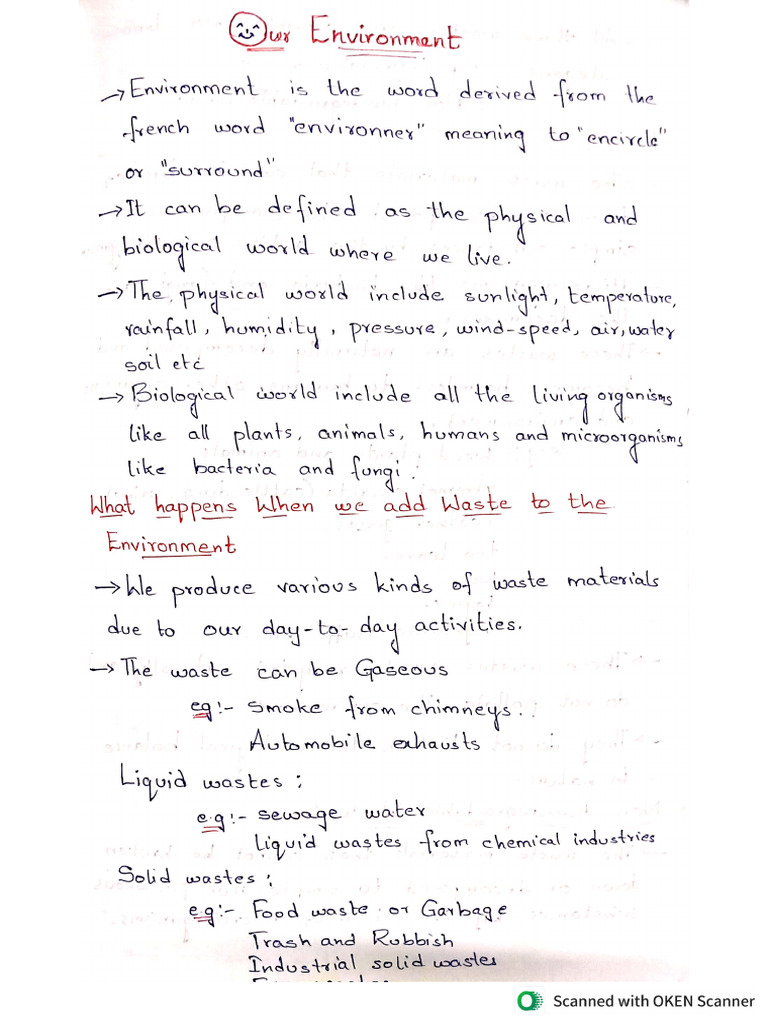 Our Environment
→ Environment is the word derived from the
french word "environner" meaning to "encircle"
or "surround"
→ It can be defined as the physical and
biological world where we live.
→ The physical world include sunlight, temperature,
rainfall, humidity, pressure, wind-speed, air, water
soil etc
→ Biological world include all the living organisms
like all plants, animals, humans and microorganisms
like bacteria and fungi.
What happens When we add Waste to the
Environment
→ We produce various kinds of waste materials
due to our day-to-day activities.
→ The waste can be Gaseous
eg:- Smoke from chimneys.
Automobile exhausts
Liquid wastes :
e.g:- sewage water
Liquid wastes from chemical industries
Solid wastes :
eg:- Food waste or Garbage
Trash and Rubbish
Industrial solid wastes
Scanned with OKEN Scanner